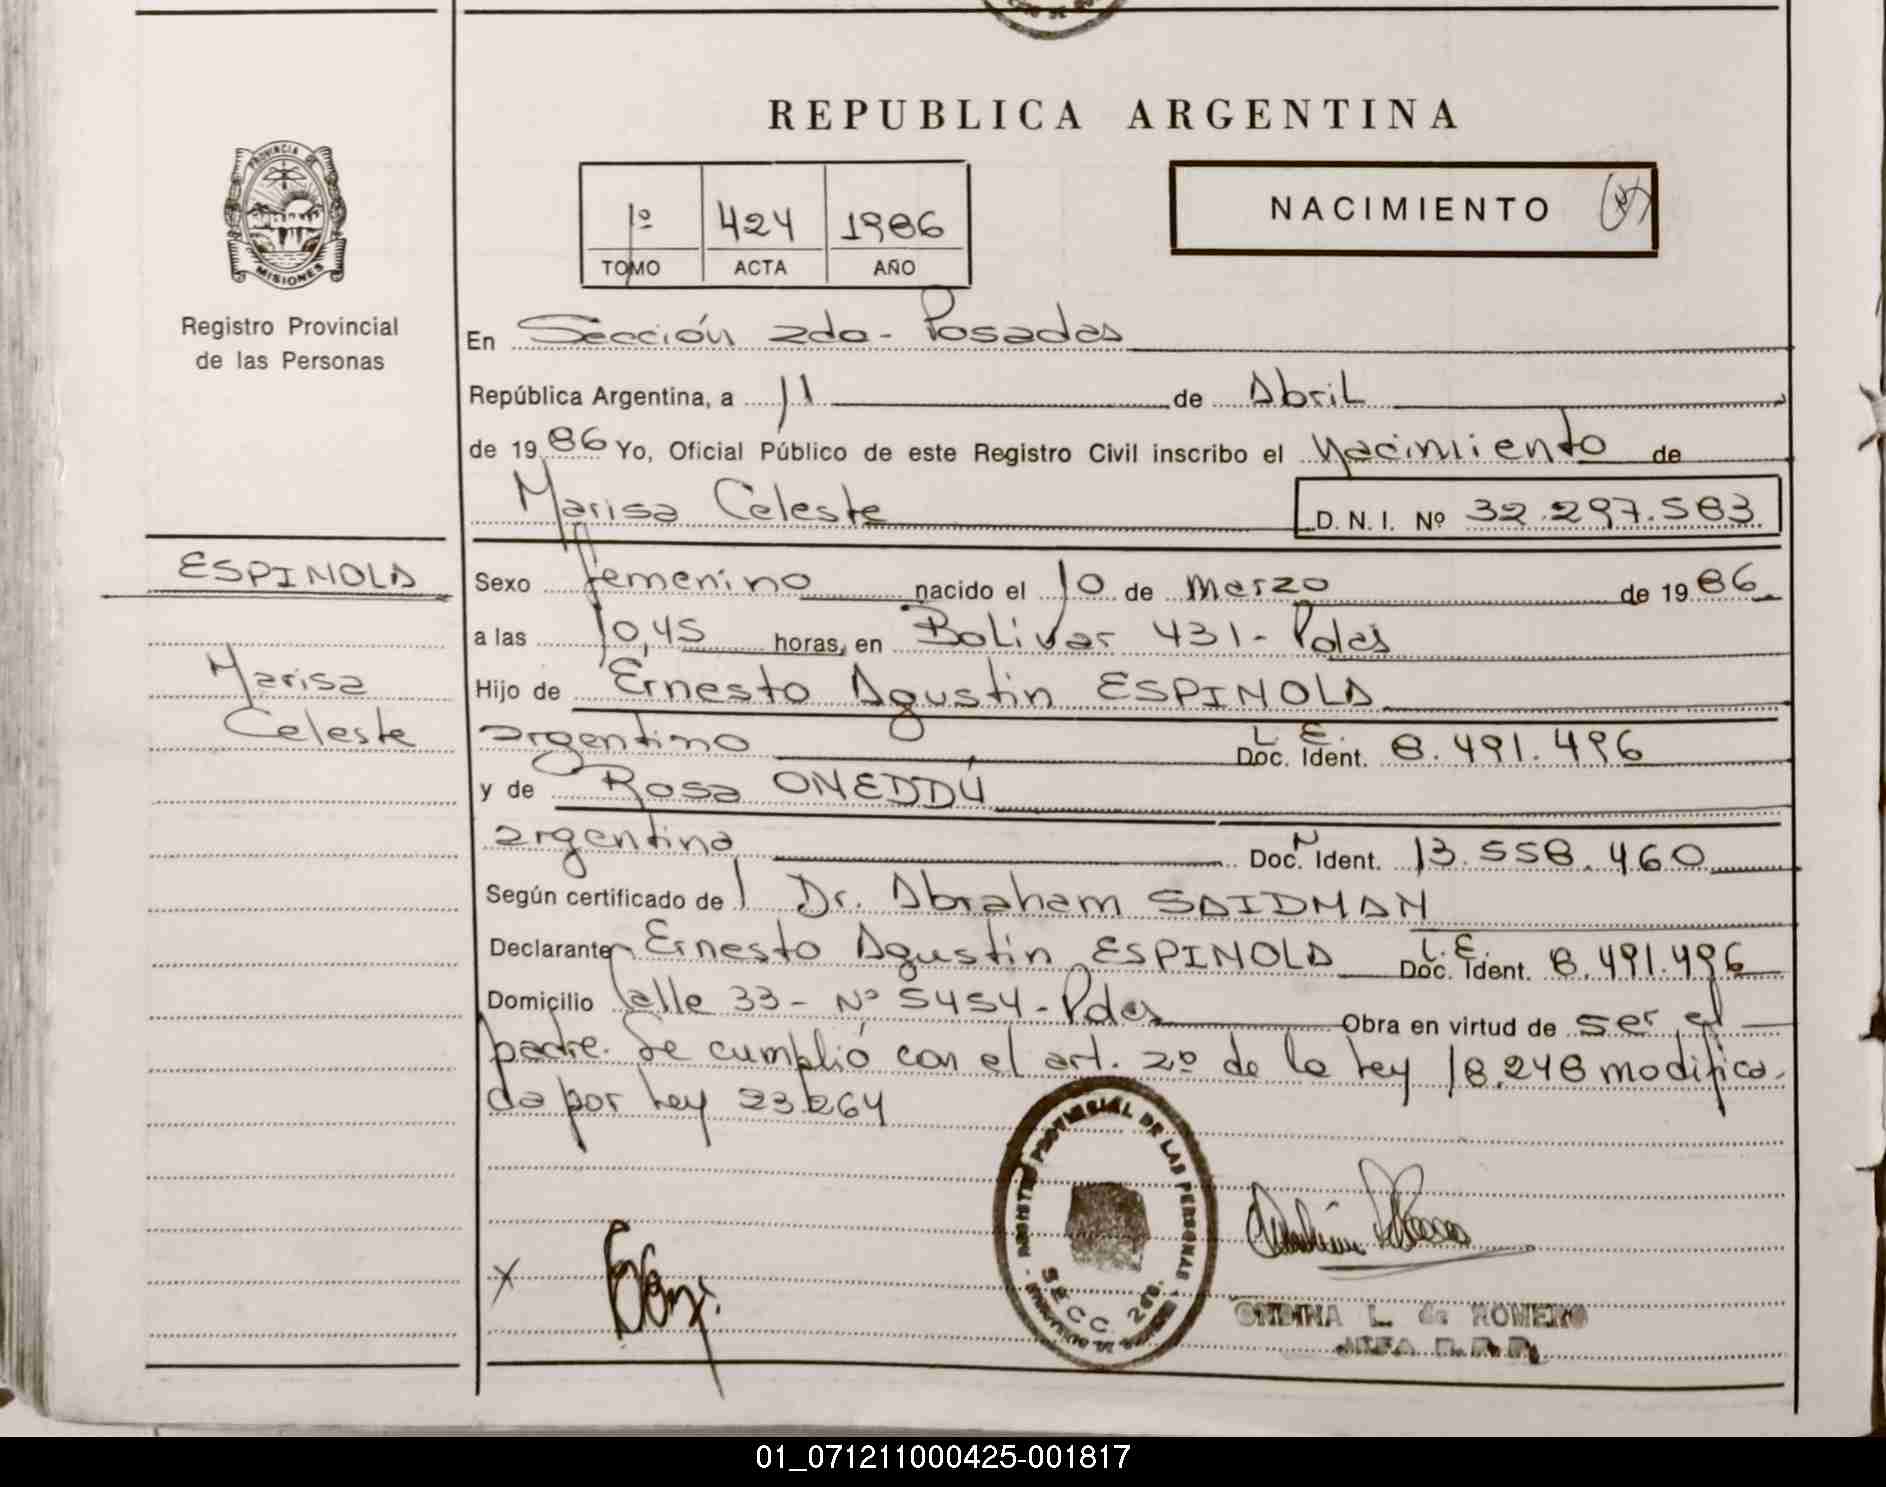 REPUBLICA ARGENTINA
PROVINCIA DE
MISIONES
Registro Provincial
de las Personas
1º 424 1986
TOMO ACTA AÑO
NACIMIENTO
En Sección 2da- Posadas
República Argentina, a 11 de Abril
de 1986 Yo, Oficial Público de este Registro Civil inscribo el Nacimiento de
Marisa Celeste D. N. I. Nº 32.297.583
ESPINOLA
Marisa
Celeste
Sexo femenino nacido el 10 de Marzo de 1986.
a las 10,45 horas, en Bolívar 431- Pdas
Hijo de Ernesto Agustín ESPINOLA
argentino L. E. Doc. Ident. 8.491.496
y de Rosa ONEDDÚ
argentina Doc. N Ident. 13.558.460
Según certificado de Dr. Abraham SAIDMAN
Declarante Ernesto Agustín ESPINOLA L. E. Doc. Ident. 8.491.496
Domicilio Calle 33- Nº 5454- Pdas Obra en virtud de ser el
padre. Se cumplió con el art. 2º de la Ley 18.248 modifica-
da por Ley 23.264
REGISTRO PROVINCIAL DE LAS PERSONAS
SECC. 2da.
X
ONDINA L. de ROMERO
JEFA R.P.P.
01_071211000425-001817